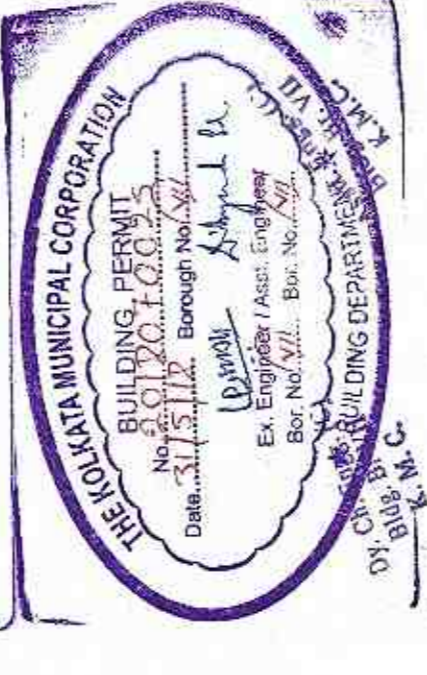 THE KOLKATA MUNICIPAL CORPORATION
BUILDING PERMIT
No. 2012070025
Date 31/5/12 Borough No. VII
Ex. Engineer / Asst. Engineer
Bor. No. VII Bor. No. VII
BUILDING DEPARTMENT
Dy. Ch.
Bldg.
K. M. C.
Bldg. Br. VII
K.M.C.